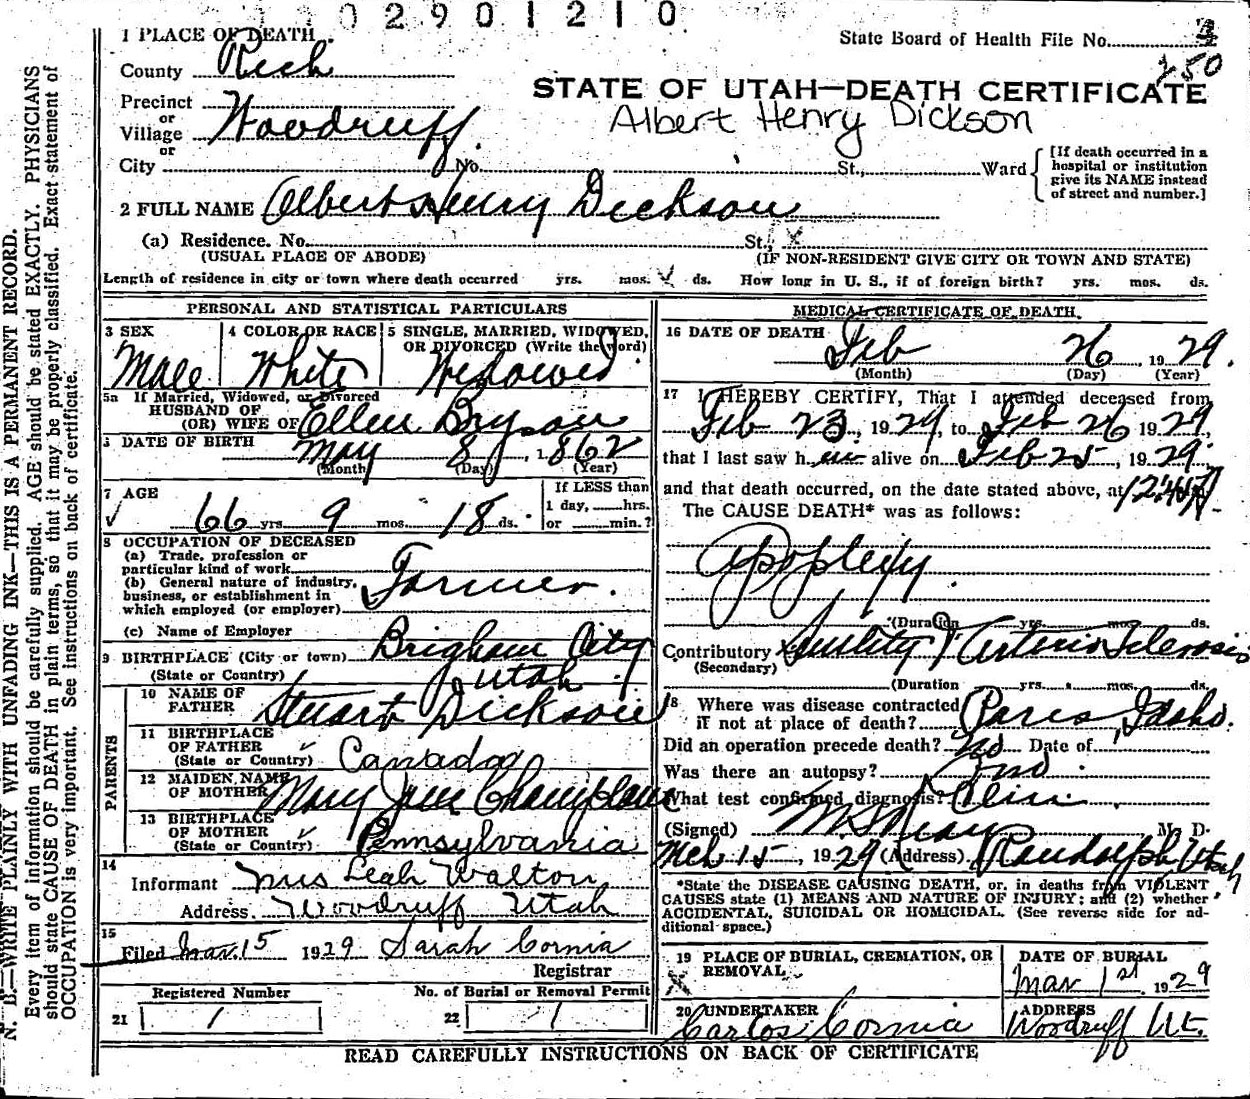 0 2 9 0 1 2 1 0
1 PLACE OF DEATH
State Board of Health File No.
250
County Rich
STATE OF UTAH—DEATH CERTIFICATE
Precinct
or
Village Woodruff
Albert Henry Dickson
or
City No. St., Ward
[If death occurred in a
hospital or institution
give its NAME instead
of street and number.]
2 FULL NAME Albert Henry Dickson
(a) Residence. No. St.,
(USUAL PLACE OF ABODE) (IF NON-RESIDENT GIVE CITY OR TOWN AND STATE)
Length of residence in city or town where death occurred yrs. mos. ds. How long in U. S., if of foreign birth? yrs. mos. ds.
PERSONAL AND STATISTICAL PARTICULARS
3 SEX
Male
4 COLOR OR RACE
White
5 SINGLE, MARRIED, WIDOWED,
OR DIVORCED (Write the word)
Widowed
5a If Married, Widowed, or Divorced
HUSBAND OF
(OR) WIFE OF Ellen Bryson
DATE OF BIRTH
May 8, 1862
(Month) (Day) (Year)
7 AGE
66 yrs 9 mos. 18 ds.
If LESS than
1 day, hrs.
or min.?
8 OCCUPATION OF DECEASED
(a) Trade, profession or
particular kind of work
(b) General nature of industry,
business, or establishment in
which employed (or employer)
Farmer.
(c) Name of Employer
9 BIRTHPLACE (City or town) Brigham City
(State or Country) Utah
PARENTS
10 NAME OF
FATHER Stuart Dickson
11 BIRTHPLACE
OF FATHER
(State or Country) Canada
12 MAIDEN NAME
OF MOTHER Mary Jane
13 BIRTHPLACE
OF MOTHER
(State or Country) Pennsylvania
14
Informant Mrs Leah Walton
Address. Woodruff Utah
15
Filed Mar. 15 1929 Sarah Cornia
Registrar
Registered Number
21 1
No. of Burial or Removal Permit
22 1
MEDICAL CERTIFICATE OF DEATH.
16 DATE OF DEATH
Feb 26, 1929.
(Month) (Day) (Year)
17 I HEREBY CERTIFY, That I attended deceased from
Feb 23, 1929, to Feb 26 1929,
that I last saw him alive on Feb 25, 1929.
and that death occurred, on the date stated above, at
The CAUSE DEATH* was as follows:
Apoplexy.
(Duration yrs. mos. ds.
Contributory Senility & Arterio Sclerosis
(Secondary)
(Duration yrs. mos. ds.
18 Where was disease contracted
if not at place of death? Paris, Idaho.
Did an operation precede death? No Date of
Was there an autopsy? No
What test confirmed diagnosis? Clin
(Signed) M. D.
Mch 15, 1929 (Address) Randolph Utah
*State the DISEASE CAUSING DEATH, or, in deaths from VIOLENT
CAUSES state (1) MEANS AND NATURE OF INJURY; and (2) whether
ACCIDENTAL, SUICIDAL OR HOMICIDAL. (See reverse side for ad-
ditional space.)
19 PLACE OF BURIAL, CREMATION, OR
REMOVAL
DATE OF BURIAL
Mar 1st, 1929
20 UNDERTAKER
Carlos Cornia
ADDRESS
Woodruff Ut.
READ CAREFULLY INSTRUCTIONS ON BACK OF CERTIFICATE
N. B.—WRITE PLAINLY WITH UNFADING INK—THIS IS A PERMANENT RECORD.
Every item of information should be carefully supplied. AGE should be stated EXACTLY. PHYSICIANS
should state CAUSE OF DEATH in plain terms, so that it may be properly classified. Exact statement of
OCCUPATION is very important. See instructions on back of certificate.